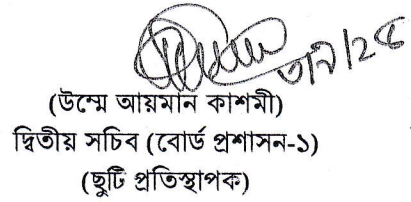 ৩/৭/২৫
(উম্মে আয়মান কাশমী)
দ্বিতীয় সচিব (বোর্ড প্রশাসন-১)
(ছুটি প্রতিস্থাপক)